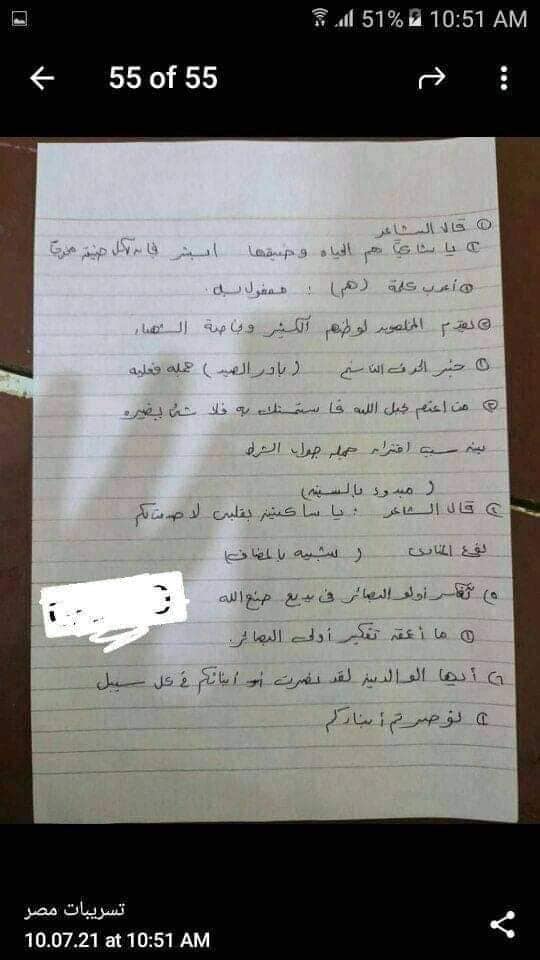 51% 10:51 AM
55 of 55
① قال الشاعر
② يا شاكيًا هم الحياة وضيقها أبشر
① أعرب كلمة (هم) : مفعول به.
③ المخلصون لوطنهم الكثير وخاصة الشهداء
① خبر الحرف الناسخ (بادر الصيد) جملة فعلية
③ من اعتصم بحبل الله فاستمسك به فلا شئ يضيره
بين سبب اقتران جملة جواب الشرط
(مبدوءة بالسين)
④ قال الشاعر : يا ساكنين بقلبي لا عدمتكم
نوع المنادى (شبيه بالمضاف)
⑤ تفكر أولو البصائر في بديع صنع الله
① ما أعمق تفكير أولى البصائر.
⑥ أيها الوالدين لقد نصرت أبنائكم في كل سبيل
①
تسريبات مصر
10.07.21 at 10:51 AM